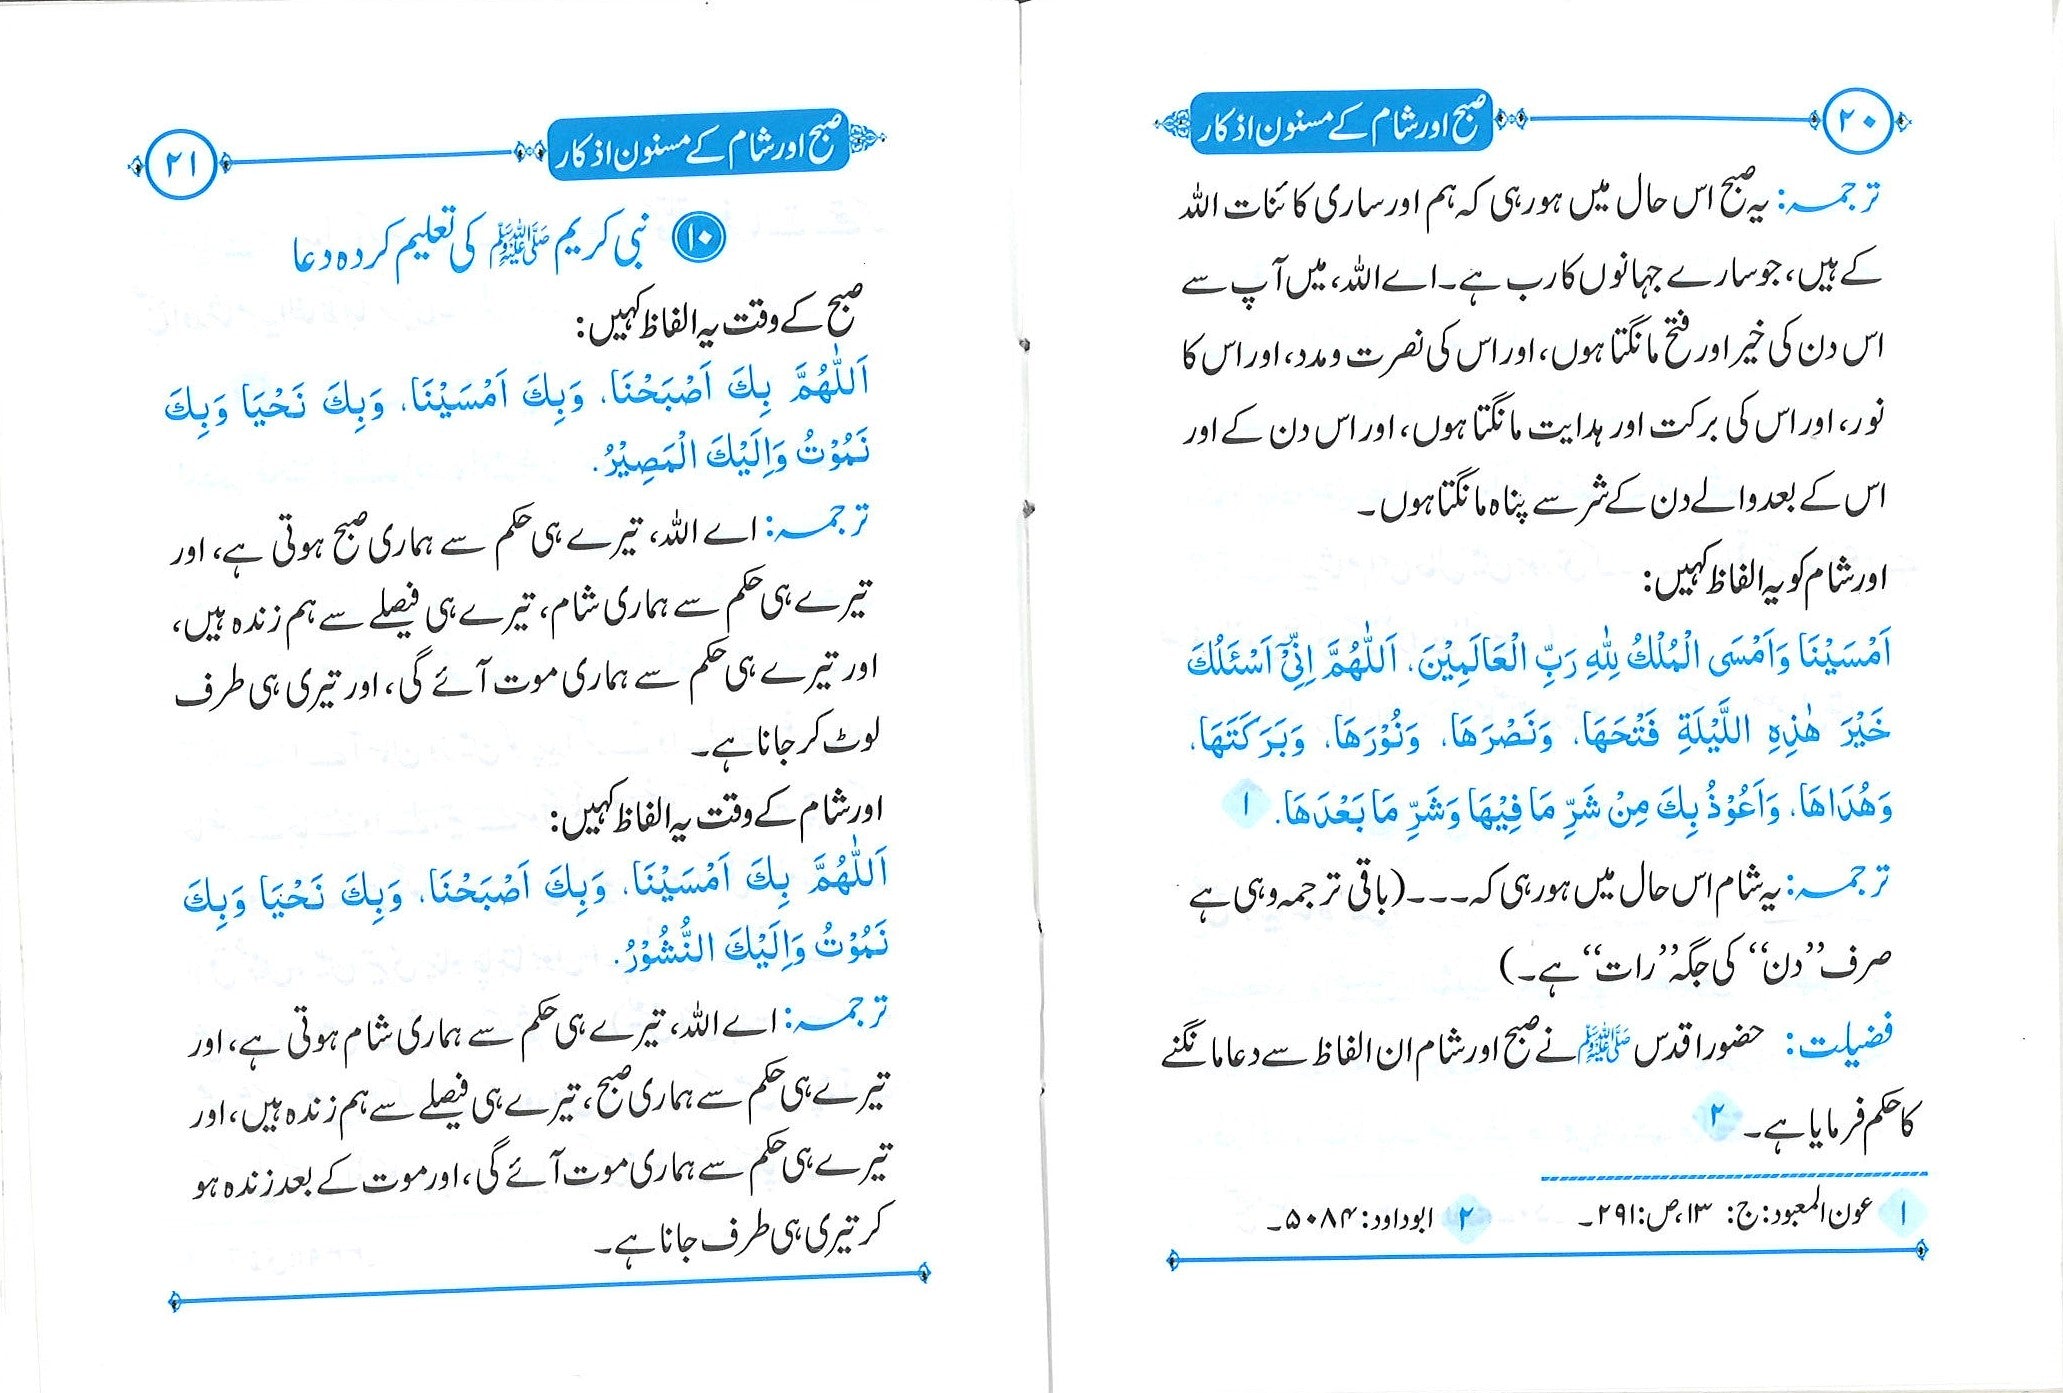 ۲۰
صبح اور شام کے مسنون اذکار
ترجمہ: یہ صبح اس حال میں ہو رہی کہ ہم اور ساری کائنات اللہ
کے ہیں، جو سارے جہانوں کا رب ہے۔ اے اللہ، میں آپ سے
اس دن کی خیر اور فتح مانگتا ہوں، اور اس کی نصرت و مدد، اور اس کا
نور، اور اس کی برکت اور ہدایت مانگتا ہوں، اور اس دن کے اور
اس کے بعد والے دن کے شر سے پناہ مانگتا ہوں۔
اور شام کو یہ الفاظ کہیں:
اَمْسَيْنَا وَاَمْسَى الْمُلْكُ لِلّٰهِ رَبِّ الْعَالَمِيْنَ، اَللّٰهُمَّ اِنِّيْٓ اَسْئَلُكَ
خَيْرَ هٰذِهِ اللَّيْلَةِ فَتْحَهَا، وَنَصْرَهَا، وَنُوْرَهَا، وَبَرَكَتَهَا،
وَهُدَاهَا، وَاَعُوْذُ بِكَ مِنْ شَرِّ مَا فِيْهَا وَشَرِّ مَا بَعْدَهَا. ۱
ترجمہ: یہ شام اس حال میں ہو رہی کہ۔۔۔ (باقی ترجمہ وہی ہے
صرف ”دن“ کی جگہ ”رات“ ہے۔)
فضیلت: حضور اقدس ﷺ نے صبح اور شام ان الفاظ سے دعا مانگنے
کا حکم فرمایا ہے۔ ۲
۱ عون المعبود: ج: ۱۳، ص: ۲۹۱۔ ۲ ابوداود: ۵۰۸۴۔
صبح اور شام کے مسنون اذکار
۲۱
۱۰ نبی کریم ﷺ کی تعلیم کردہ دعا
صبح کے وقت یہ الفاظ کہیں:
اَللّٰهُمَّ بِكَ اَصْبَحْنَا، وَبِكَ اَمْسَيْنَا، وَبِكَ نَحْيَا وَبِكَ
نَمُوْتُ وَاِلَيْكَ الْمَصِيْرُ.
ترجمہ: اے اللہ، تیرے ہی حکم سے ہماری صبح ہوتی ہے، اور
تیرے ہی حکم سے ہماری شام، تیرے ہی فیصلے سے ہم زندہ ہیں،
اور تیرے ہی حکم سے ہماری موت آئے گی، اور تیری ہی طرف
لوٹ کر جانا ہے۔
اور شام کے وقت یہ الفاظ کہیں:
اَللّٰهُمَّ بِكَ اَمْسَيْنَا، وَبِكَ اَصْبَحْنَا، وَبِكَ نَحْيَا وَبِكَ
نَمُوْتُ وَاِلَيْكَ النُّشُوْرُ.
ترجمہ: اے اللہ، تیرے ہی حکم سے ہماری شام ہوتی ہے، اور
تیرے ہی حکم سے ہماری صبح، تیرے ہی فیصلے سے ہم زندہ ہیں، اور
تیرے ہی حکم سے ہماری موت آئے گی، اور موت کے بعد زندہ ہو
کر تیری ہی طرف جانا ہے۔